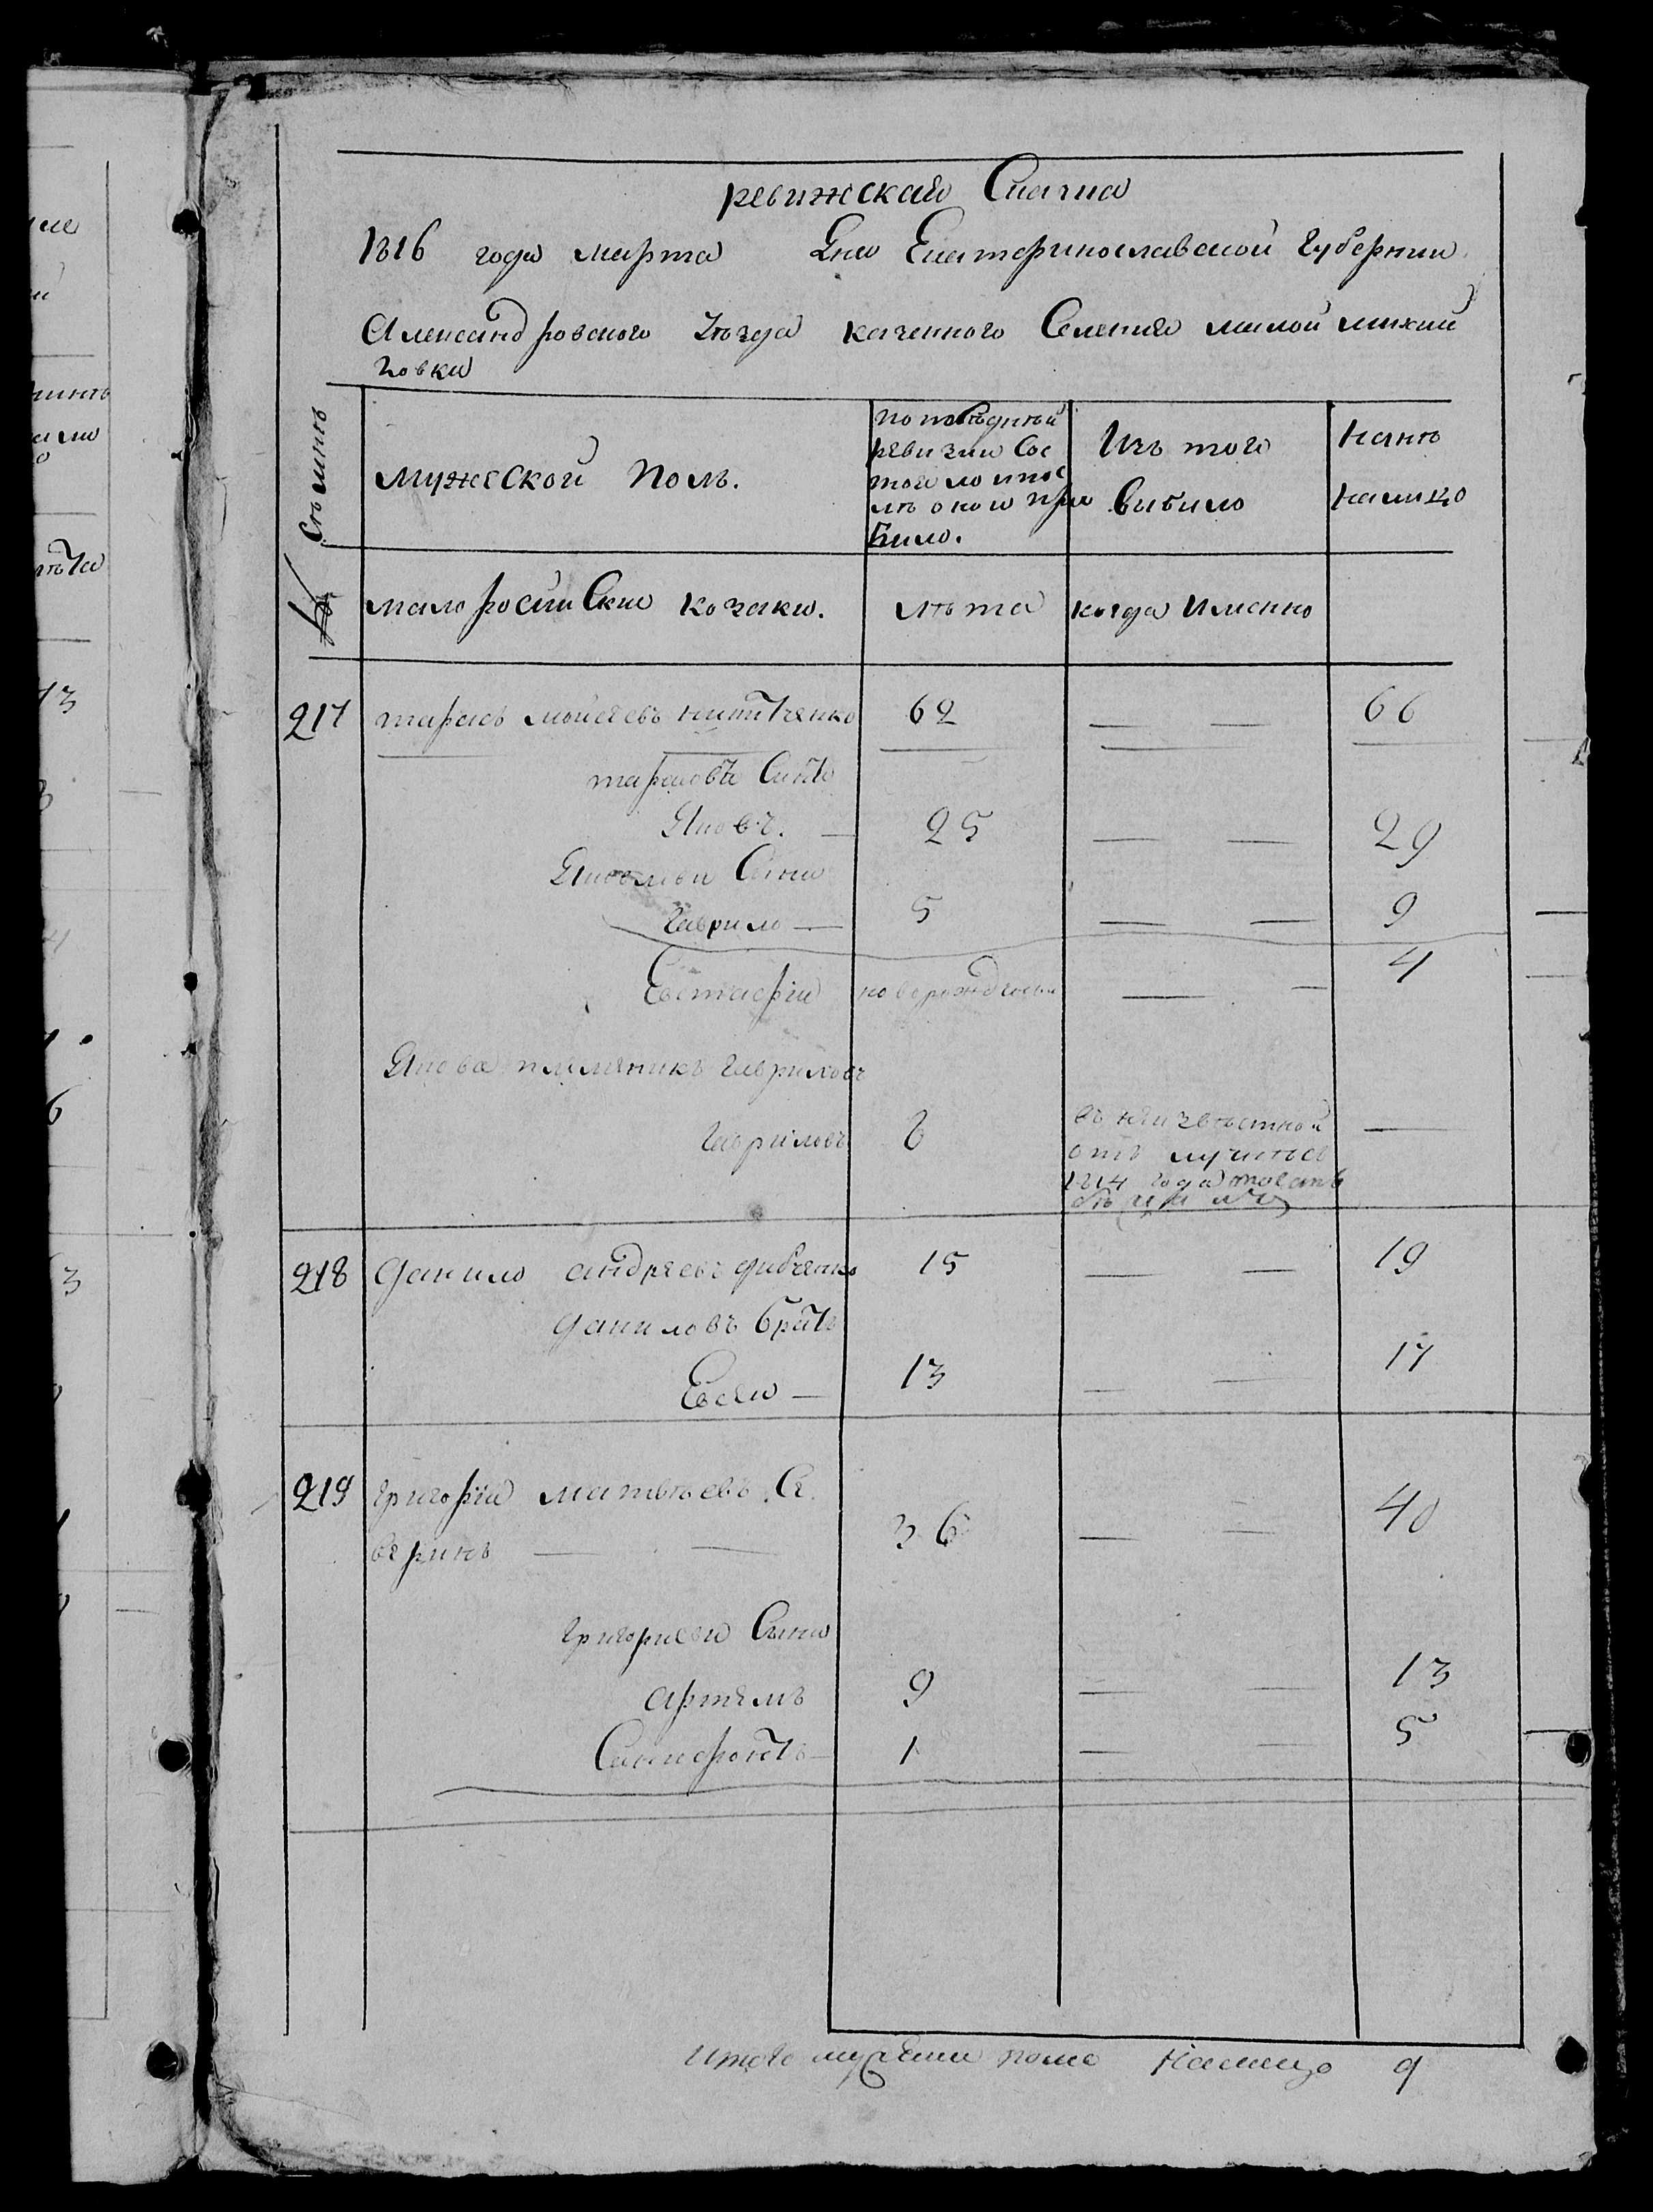 ревижская Скаска
1816 года марта Дня Екатеринославской Губернии
Александровского Уезда казенного Селения малой михай
ловки
Семьи
мужеской полъ.
По последней
ревизии Сос
тояло и пос
ле оной при
било.
Изъ того
вибило
Ныне
налицо
№
малоросийские козаки.
лета
когда именно
217 тарасъ мойсеевъ никитченко 62 — — 66
тарасовъ Синъ
Яковъ. — 25 — — 29
Яковлеви Сини
Гаврило — 5 — — 9
Евстафiй новорожденний — — 4
Якова племяникъ Гавриловъ
Гавриловъ 6 —
въ неизвестной
отлучке съ
1814 года
218 Данило андреевъ дибченко 15 — — 19
Даниловъ братъ
Евсей — 13 — — 17
219 Григорiй матвеевъ Се
веринъ — — 36 — — 40
Григориеви Сини
артемъ 9 — — 13
Ксенофонтъ — 1 — — 5
Итого мужеска пола Налицо 9